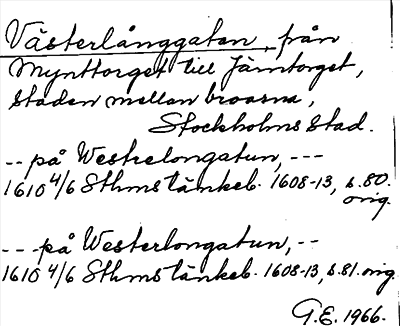 Västerlånggatan, från
Mynttorget till Järntorget,
staden mellan broarna,
Stockholms stad.
-- på Westrelongatun, ---
1610 4/6 Sthms tänkeb. 1608-13, s.80.
orig.
-- på Westerlongatun, --
1610 4/6 Sthms tänkeb. 1608-13, s.81. orig
G.E. 1966.